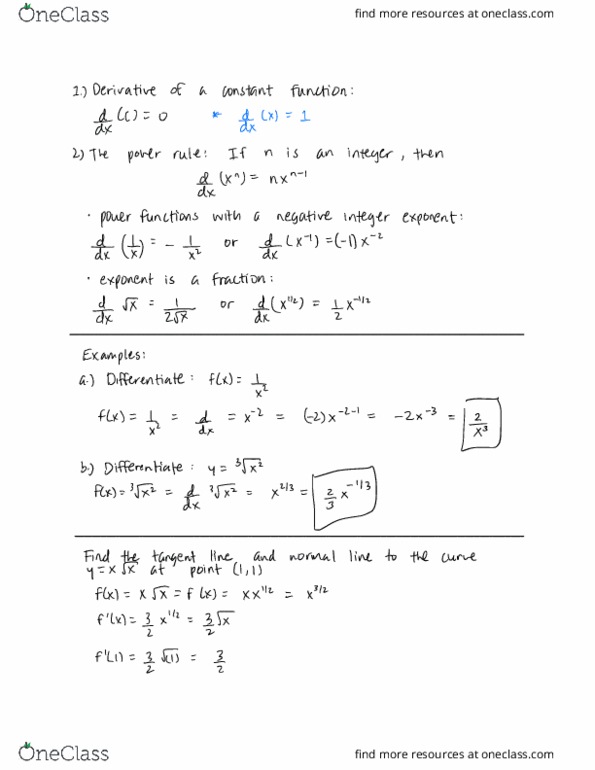 OneClass
find more resources at oneclass.com
1.) Derivative of a constant function:
d/dx (c) = 0 * d/dx (x) = 1
2.) The power rule: If n is an integer, then
d/dx (xⁿ) = nxⁿ⁻¹
• power functions with a negative integer exponent:
d/dx (1/x) = - 1/x² or d/dx (x⁻¹) = (-1)x⁻²
• exponent is a fraction:
d/dx √x = 1/2√x or d/dx (x^1/2) = 1/2 x^-1/2
Examples:
a.) Differentiate: f(x) = 1/x²
f(x) = 1/x² = d/dx = x⁻² = (-2)x⁻²⁻¹ = -2x⁻³ = 2/x³
b.) Differentiate: y = ³√x²
f(x) = ³√x² = d/dx ³√x² = x^2/3 = 2/3 x^-1/3
Find the tangent line and normal line to the curve
y = x√x at point (1,1)
f(x) = x√x = f(x) = xx^1/2 = x^3/2
f'(x) = 3/2 x^1/2 = 3/2 √x
f'(1) = 3/2 √(1) = 3/2
OneClass
find more resources at oneclass.com